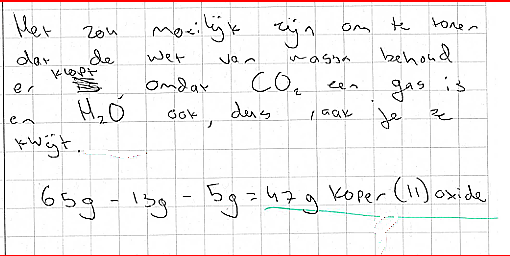 Het zou moeilijk zijn om te tonen
dat de wet van massa behoud
er klopt omdat CO₂ een gas is
en H₂O ook, dus raak je ze
kwijt.
65g - 13g - 5g = 47g koper (II) oxide